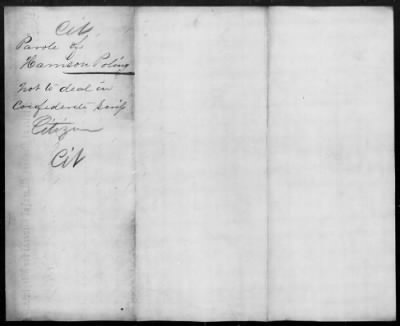 Cit
Parole of
Harrison Poling
not to deal in
Confederate Scrip
Citizen
Cit